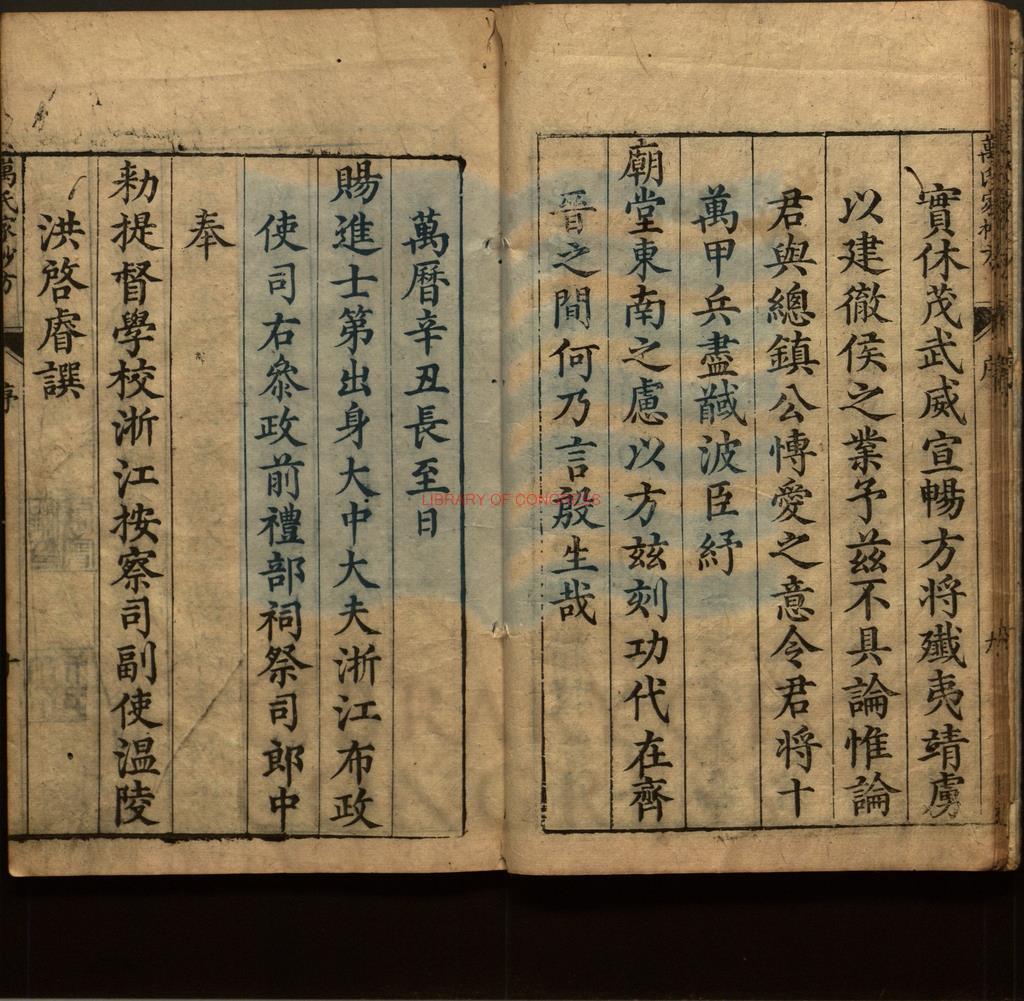 實休茂武威宣暢方将殲夷靖虜
以建徹侯之業予茲不具論惟論
君與總鎮公愽愛之意令君将十
萬甲兵盡馘波臣紓
廟堂東南之慮以方茲刻功代在齊
晉之間何乃言殷生哉
萬曆辛丑長至日
賜進士第出身大中大夫浙江布政
使司右叅政前禮部祠祭司郎中
奉
勑提督學校浙江按察司副使温陵
洪啓睿譔
萬氏家抄方
序
LIBRARY OF CONGRESS